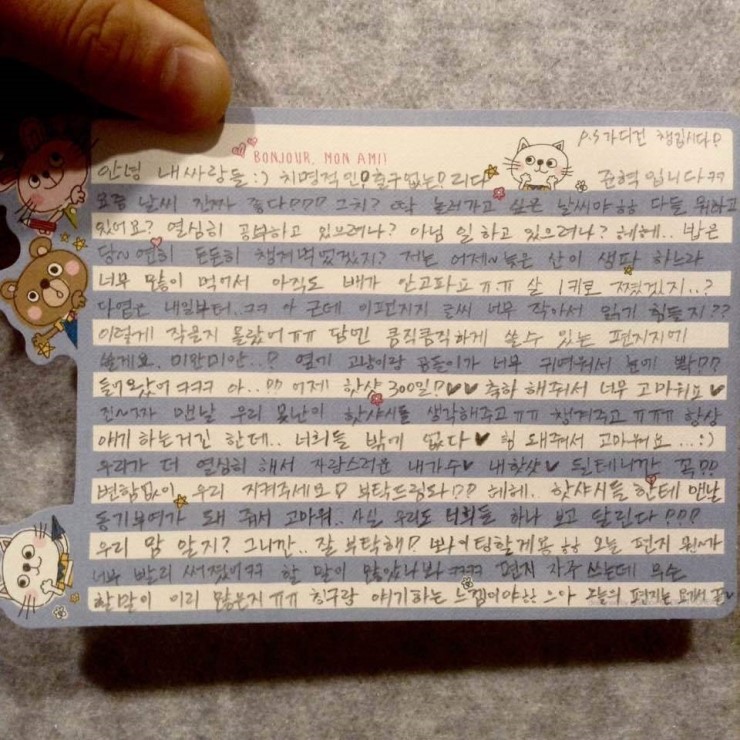 p.s 가디건 챙깁시다!
BONJOUR, MON AMI!
안녕 내사랑들 :) 치명적인! 출구없는! 리다 준혁입니다ㅋㅋ
요즘 날씨 진짜 좋다!!! 그치? 딱 놀러가고 싶은 날씨야ㅎㅎ 다들 뭐하고
있어요? 열심히 공부하고 있으려나? 아님 일하고 있으려나? 헤헤.. 밥은
당~연히 든든히 챙겨먹었겠지? 저는 어제~늦은 산이 생파 하느라
너무 많이 먹어서 아직도 배가 안고파요ㅠㅠ 살 1키로 쪘겠지..?
다엽은 내일부터..ㅋㅋ 아 근데 이편지지 글씨 너무 작아서 읽기 힘들지??
이렇게 작을지 몰랐어ㅠㅠ 담번 큼직큼직하게 쓸수 있는 편지지에
쓸게요. 미안미안..! 옆에 고냥이랑 곰돌이가 너무 귀여워서 눈에 빡!!
들어왔어ㅋㅋㅋ 아..!! 어제 핫샷 300일!♥♥ 축하해줘서 너무 고마워요♥
진~짜 맨날 우리 못난이 핫샤시들 생각해주고ㅠㅠ 챙겨주고ㅠㅠㅠ 항상
얘기하는거긴 한데.. 너희들 밖에 없다♥ 힘 돼줘서 고마워요...:)
우리가 더 열심히 해서 자랑스러운 내가수♥ 내핫샷♥ 될테니깐 꼭!!
변함없이 우리 지켜주세요! 부탁드립니다!! 헤헤. 핫샤시들 한테 맨날
동기부여가 돼 줘서 고마워.. 사실 우리도 너희들 하나 보고 달린다!!!
우리 맘 알지? 그니깐.. 잘 부탁해! 화이팅할게용ㅎㅎ 오늘 편지 뭔~가
너무 빨리 써졌어ㅋㅋ 할 말이 많았나봐ㅋㅋㅋ 편지 자주 쓰는데 무슨
할말이 이리 많은지ㅠㅠ 친구랑 얘기하는 느낌이야ㅎㅎ 으아 오늘의 편지는 요기서 끝♥